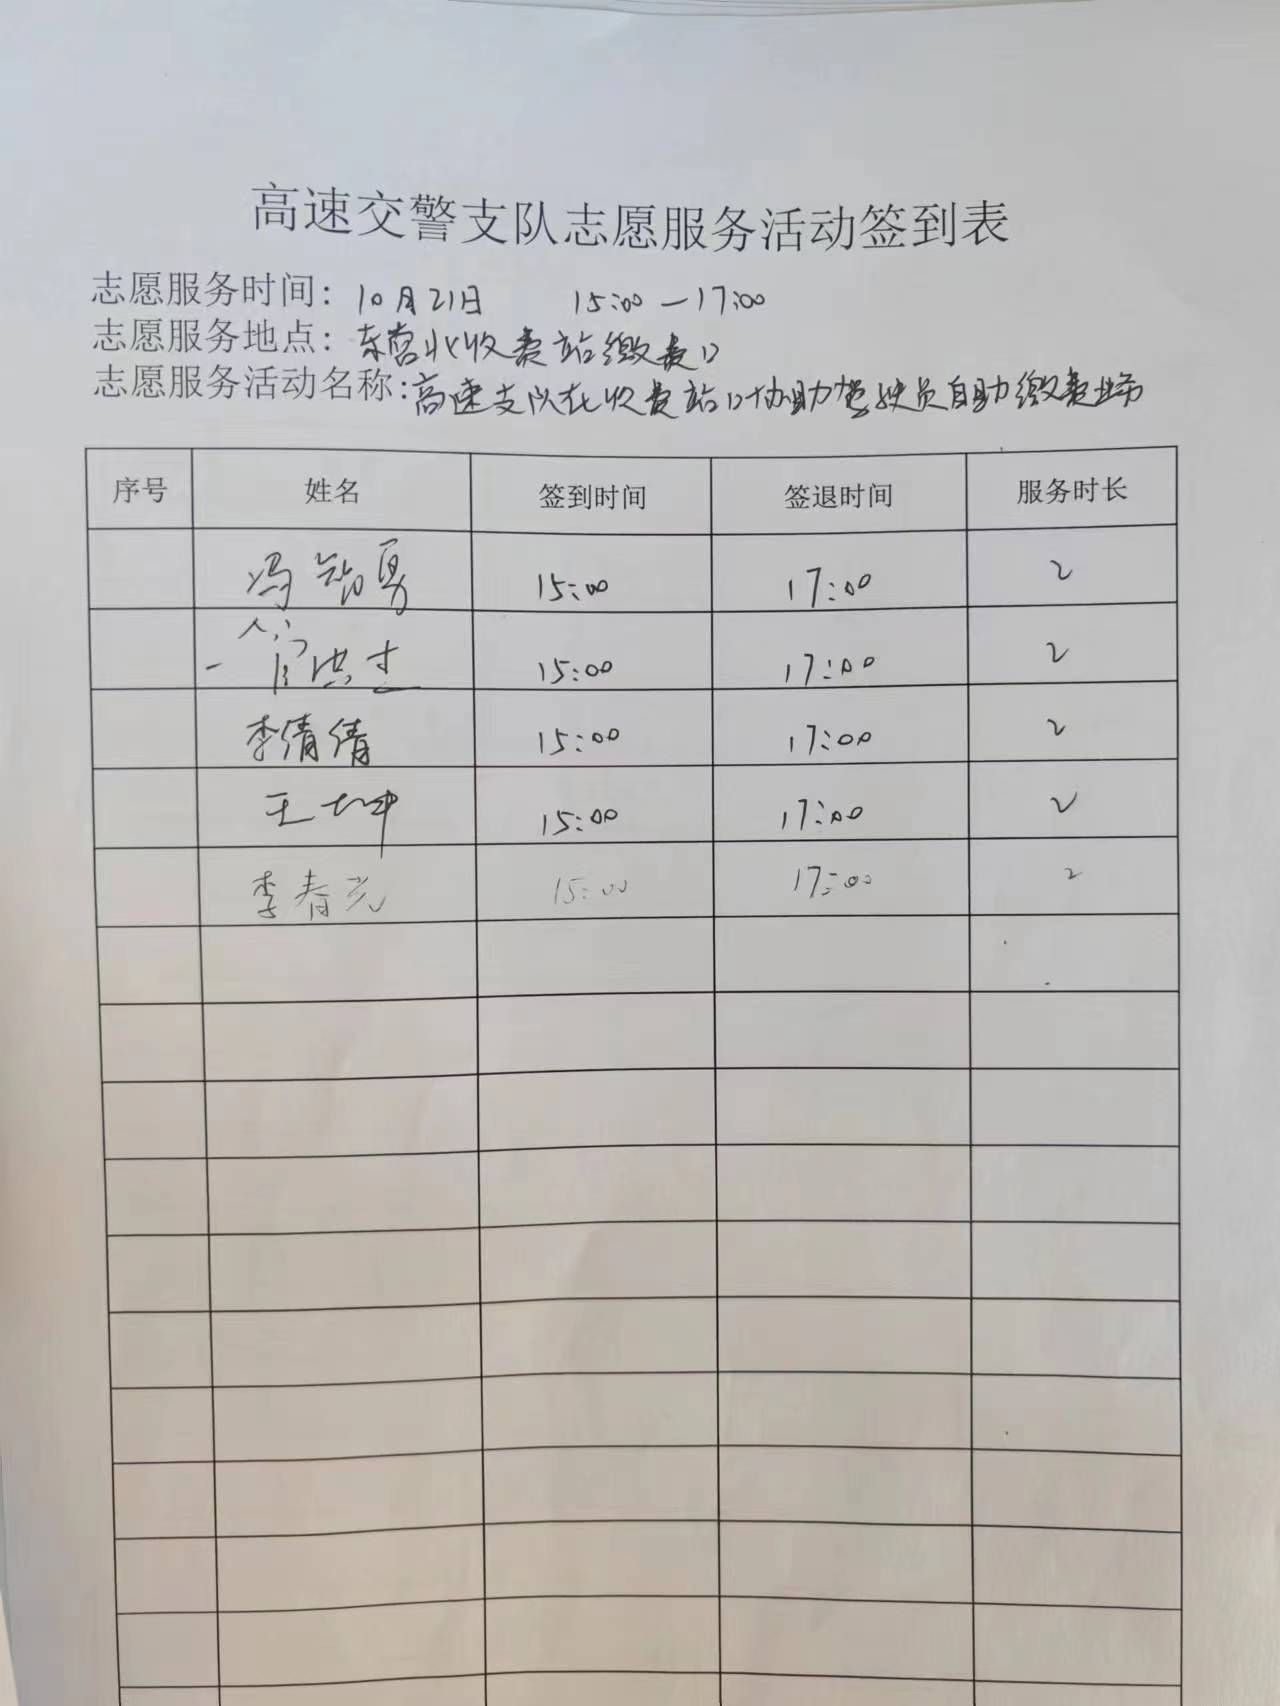 高速交警支队志愿服务活动签到表
志愿服务时间：10月21日 15:00—17:00
志愿服务地点：东营北收费站缴费口
志愿服务活动名称:高速支队在收费站口协助驾驶员自助缴费业务
序号 姓名 签到时间 签退时间 服务时长
冯 勇 15:00 17:00 2
15:00 17:00 2
李倩倩 15:00 17:00 2
王坤 15:00 17:00 2
李春光 15:00 17:00 2